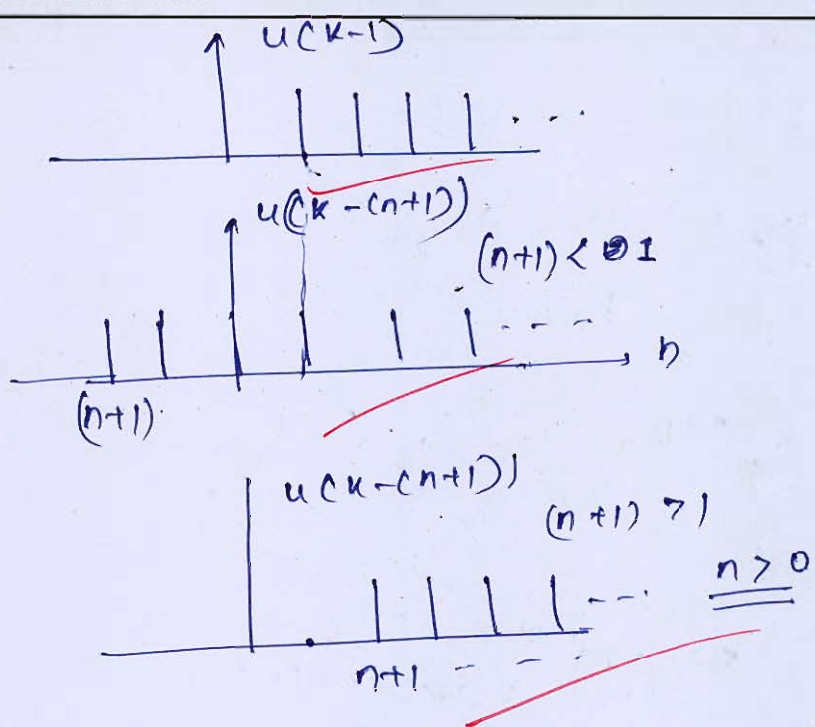 u(k-1)
. . .
u(k-(n+1))
(n+1) < 1
- - -
n
(n+1)
u(k-(n+1))
(n+1) > 1
n > 0
- - -
n+1 - - -